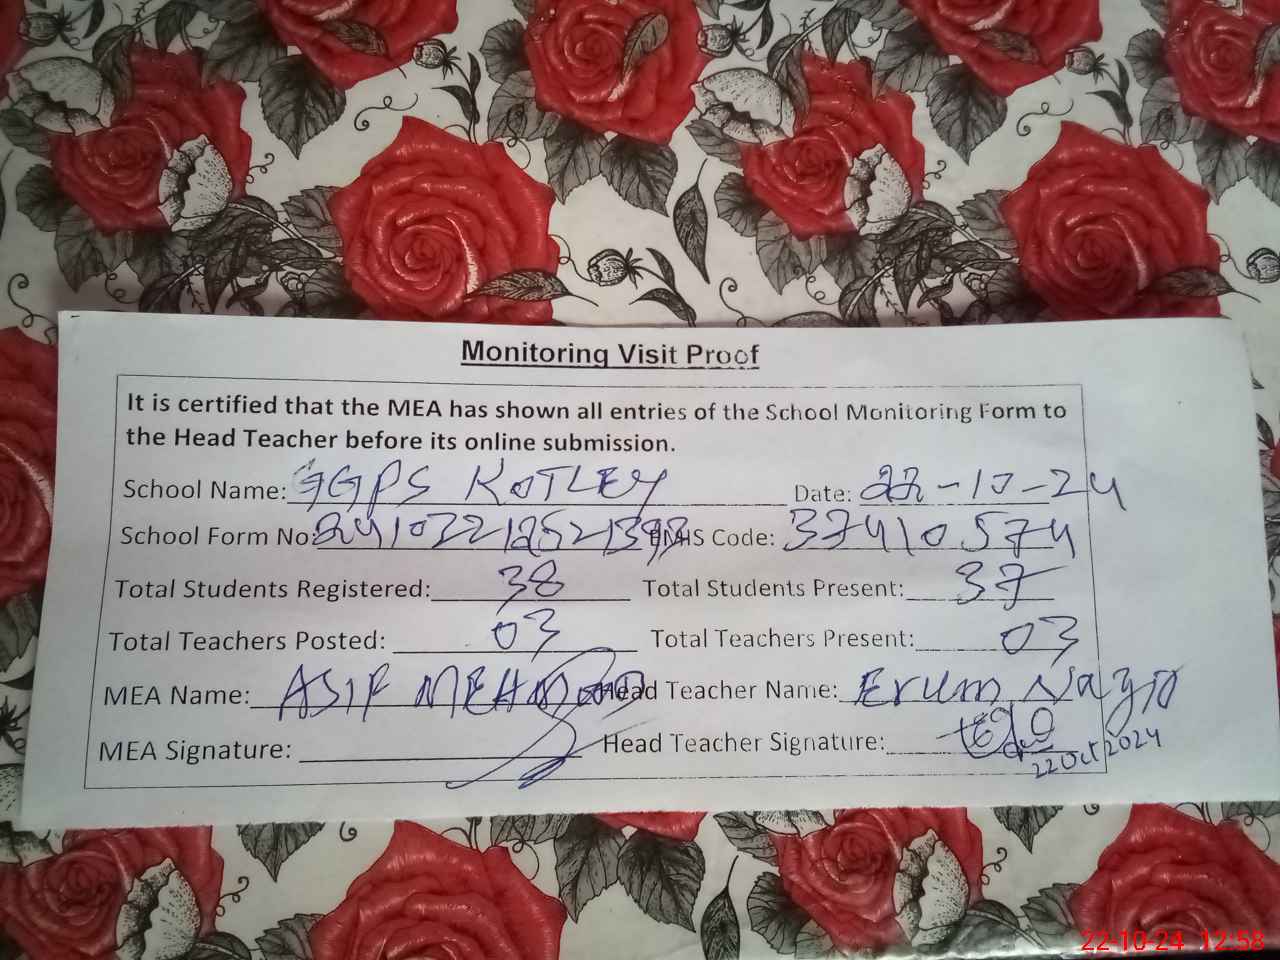 Monitoring Visit Proof
It is certified that the MEA has shown all entries of the School Monitoring Form to
the Head Teacher before its online submission.
School Name: GGPS KOTLEY Date: 22-10-24
School Form No: 24102212521393 EMIS Code: 37410574
Total Students Registered: 38 Total Students Present: 37
Total Teachers Posted: 03 Total Teachers Present: 03
MEA Name: ASIF MEHMOOD Head Teacher Name: Erum Naz
MEA Signature: Head Teacher Signature:
22 Oct 2024
22-10-24 12:58